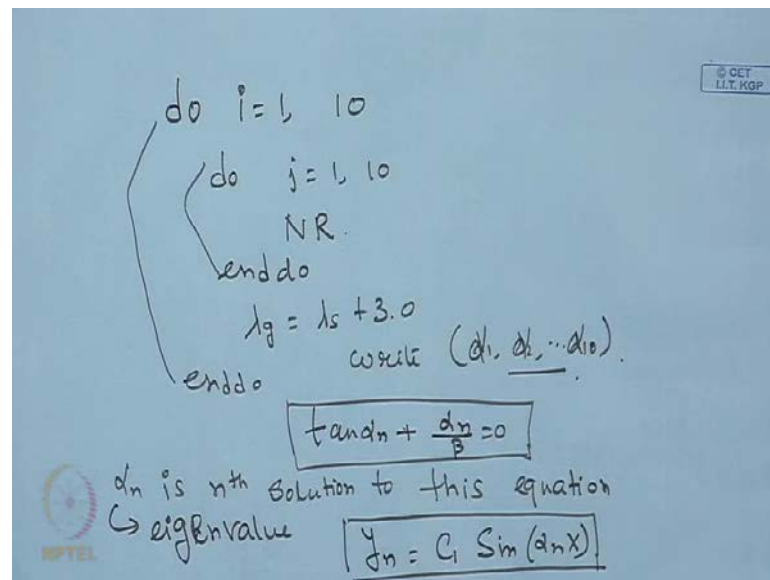 © CET
I.I.T. KGP
do i = 1, 10
do j = 1, 10
NR.
enddo
λg = λs + 3.0
write (α1, α2, ... α10).
enddo
tan αn + αn/β = 0
αn is nth solution to this equation
↳ eigenvalue yn = C1 Sin (αn x)
NPTEL